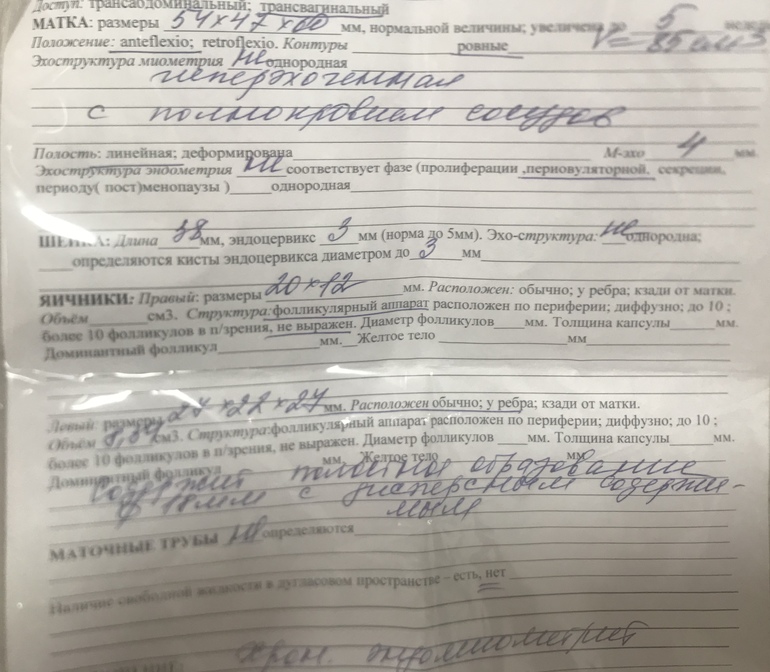 Доступ: трансабдоминальный; трансвагинальный
МАТКА: размеры 54×47×60 мм, нормальной величины; увеличена до 5 недель
Положение: anteflexio; retroflexio. Контуры ровные V= 85 см3
Эхоструктура миометрия неоднородная
гиперэхогенная
с полнокровием сосудов
Полость: линейная; деформирована М-эхо 4 мм.
Эхоструктура эндометрия не соответствует фазе (пролиферации ,периовуляторной, секреции,
периоду( пост)менопаузы ) однородная
ШЕЙКА: Длина 38 мм, эндоцервикс 3 мм (норма до 5мм). Эхо-структура: не однородна;
определяются кисты эндоцервикса диаметром до 3 мм
ЯИЧНИКИ: Правый: размеры 20×12 мм. Расположен: обычно; у ребра; кзади от матки.
Объём см3. Структура:фолликулярный аппарат расположен по периферии; диффузно; до 10 ;
более 10 фолликулов в п/зрения, не выражен. Диаметр фолликулов мм. Толщина капсулы мм.
Доминантный фолликул мм. Желтое тело мм
Левый: размеры 27×22×27 мм. Расположен обычно; у ребра; кзади от матки.
Объём см3. Структура:фолликулярный аппарат расположен по периферии; диффузно; до 10 ;
более 10 фолликулов в п/зрения, не выражен. Диаметр фолликулов мм. Толщина капсулы мм.
Доминантный фолликул мм. Желтое тело мм
Содержит полостное образование
18мм с дисперсным содержи-
мым
МАТОЧНЫЕ ТРУБЫ не определяются
Наличие свободной жидкости в дугласовом пространстве – есть, нет
Хрон. эндомиометрит